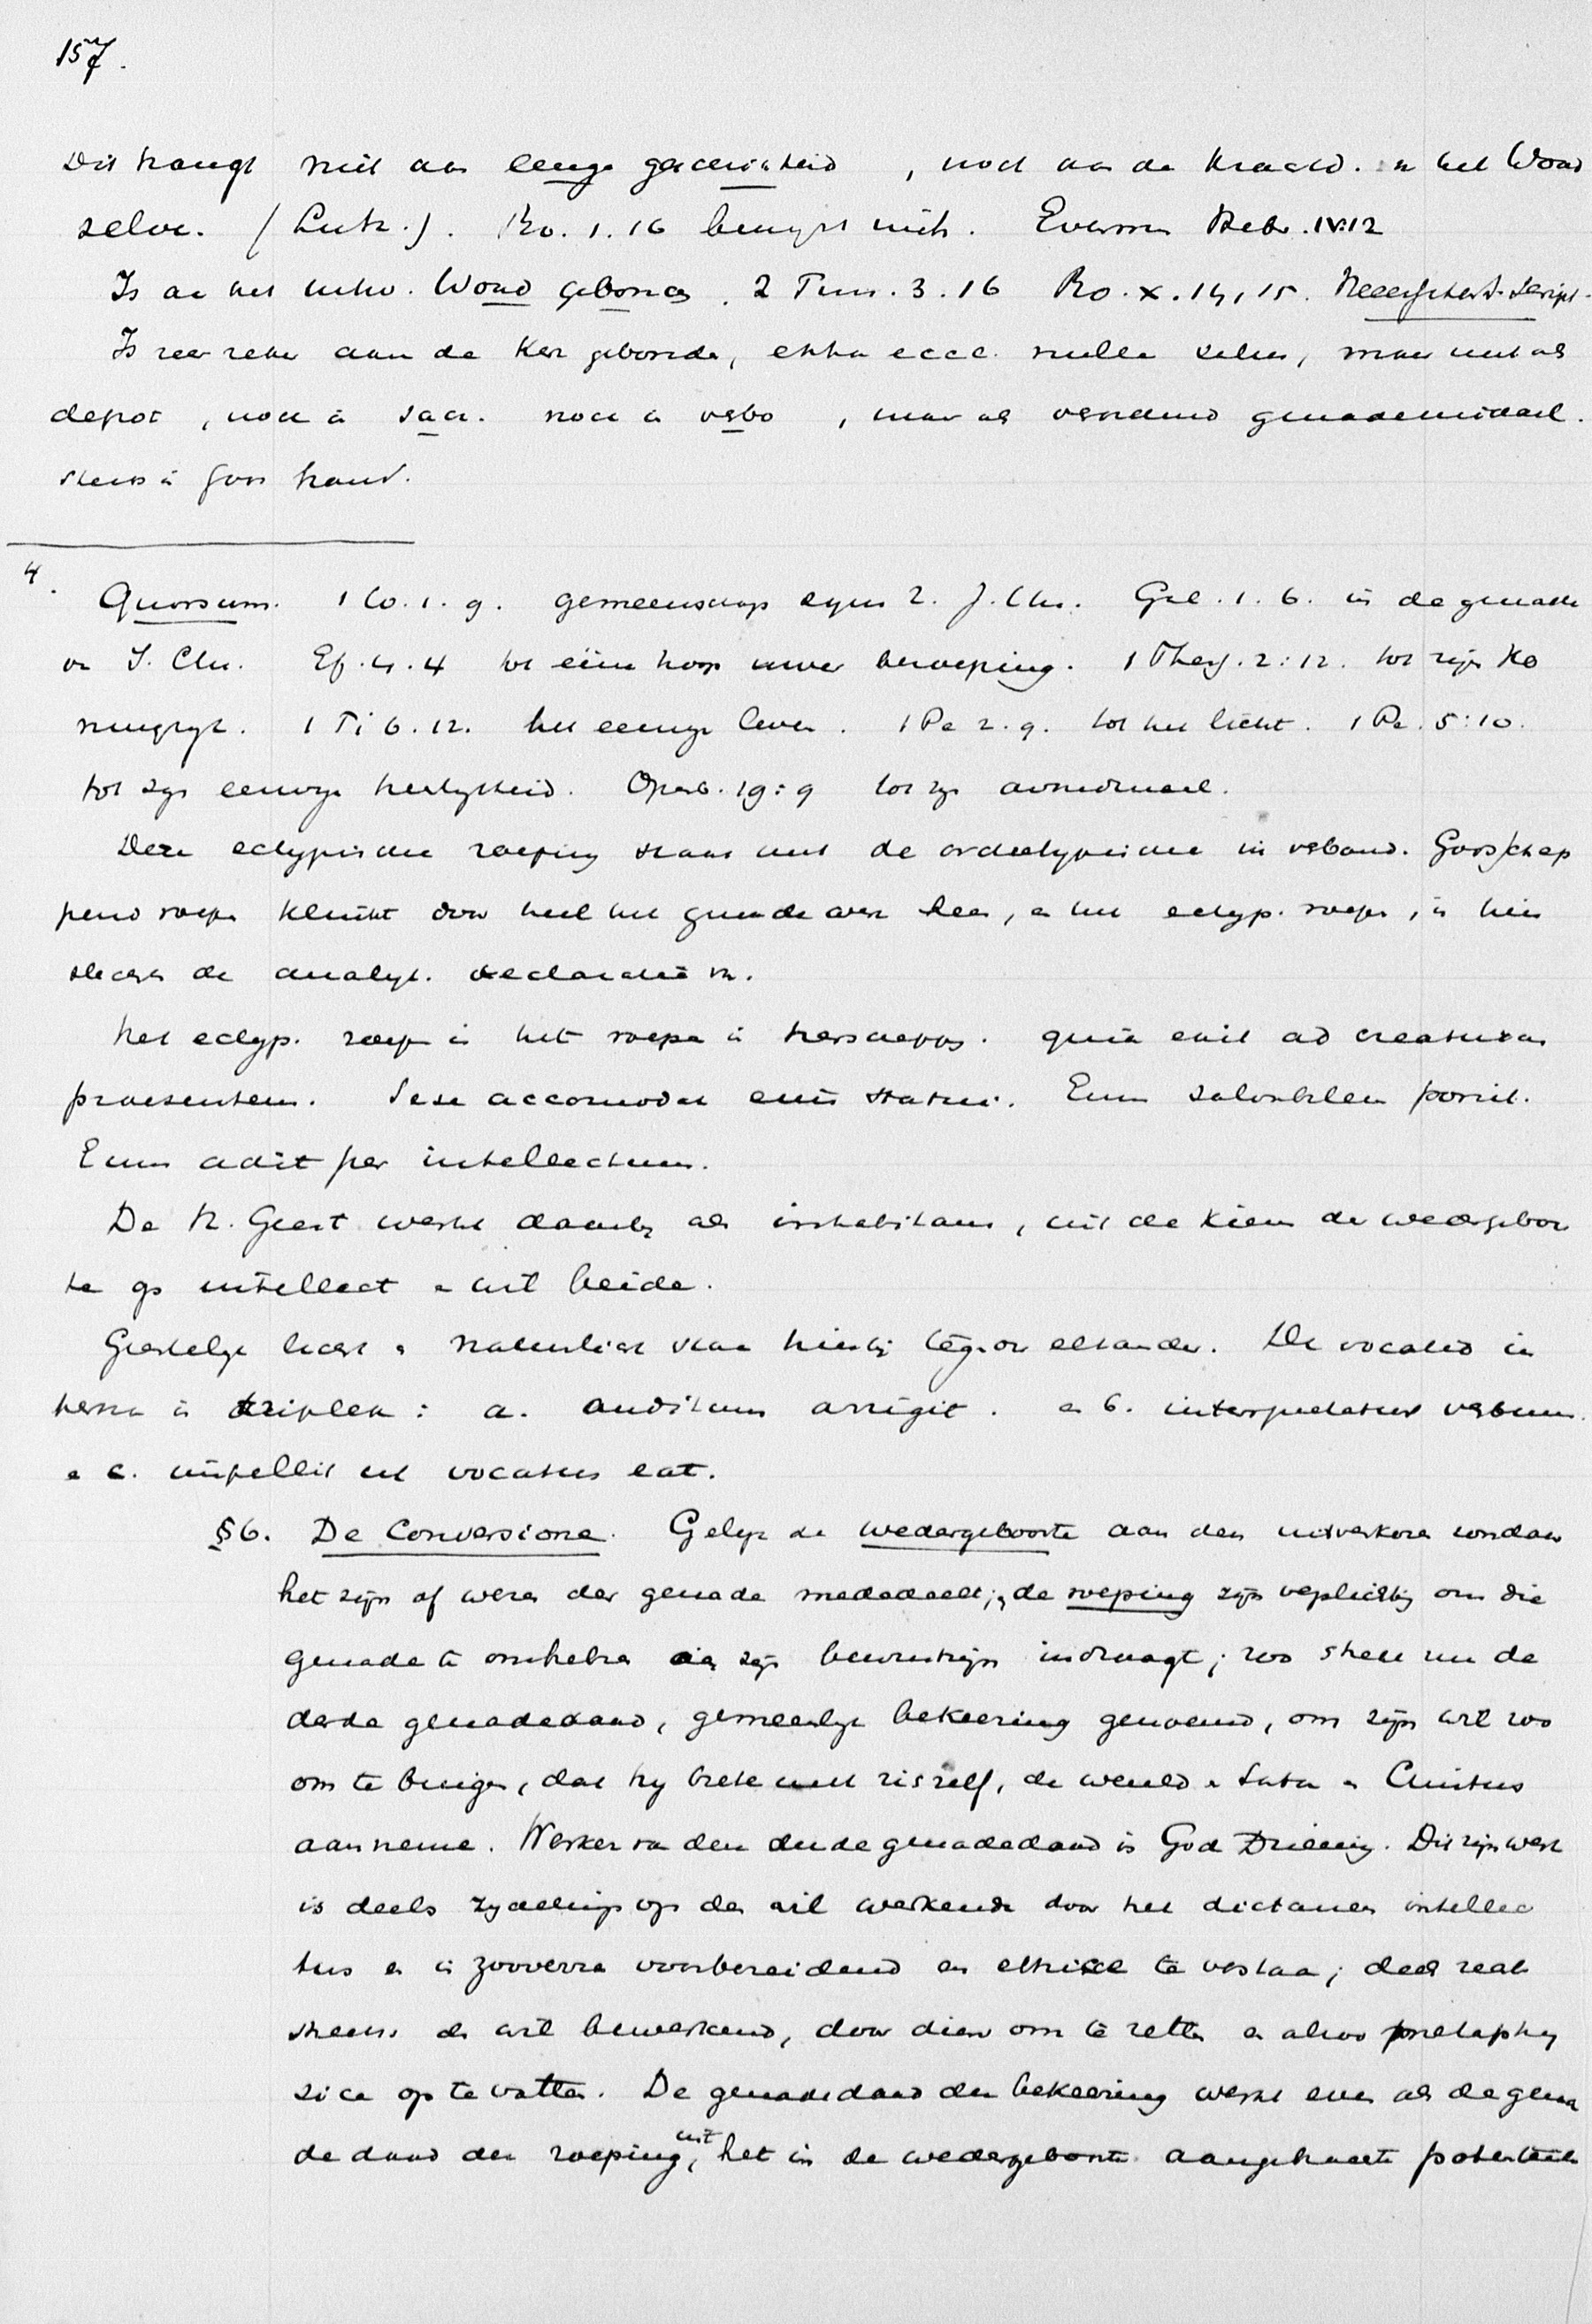 157.
Dit hangt niet aan eenige geschiktheid, noch aan de kracht. in het Woord
zelve. (Luth.). Ro. 1.16 bewijst niets. Evenmin Hebr. IV:12
Is aan het Woord gebonden. 2 Tim. 3.16 Ro. X.14,15. Script.
Is zeer zeker aan de Kerk gebonden, extra eccl. nulla salus, maar niet als
depot, noch in sacr. noch in verbo, maar als genademiddel.
steeds in Gods hand.
4.
Quorsum. 1 Co. 1.9. gemeenschap zijns Z. J. Chr. Gal. 1.6. in de genade
v. J. Chr. Ef. 4.4 tot eéne hoop uwer beroeping. 1 Thess. 2:12. tot zijn Ko
ningrijk. 1 Ti 6.12. het eeuwige leven. 1 Pe 2.9. tot het licht. 1 Pe. 5:10.
tot zijn eeuwige heerlijkheid. Openb. 19:9 tot zijn avondmaal.
Deze ectypische roeping staat met de archetypische in verband. Gods schep
pend roepen klinkt door heel het genadewerk heen, en het ectyp. roepen, is hier
slechts de analyt. declaratie v.
Het ectyp. roepen is het roepen in herschepping. quia exit ad creaturam
praesentem. Sese accomodat eius statui. Eum salvabilem ponit.
Eum adit per intellectum.
De H. Geest werkt daarbij als inhabitans, uit de kiem der wedergeboor
te op intellect en wil beide.
Geestelijk licht en natuurlicht staan hierbij tegenover elkander. De vocatio in
terna is triplex: a. auditum arrigit. en b. interpretatur verbum.
en c. impellit ut vocatus eat.
§6. De Conversione. Gelijk de wedergeboorte aan den uitverkoren zondaar
het zijn of wezen der genade mededeelt; en de roeping zijn verplichting om die
genade te omhelzen in zijn bewustzijn indraagt; zoo strekt nu de
derde genadedaad, gemeenlijk bekeering genoemd, om zijn wil zoo
om te buigen, dat hij breke met zichzelf, de wereld en Satan en Christus
aanneme. Werker van den derde genadedaad is God Drieenig. Dit zijn werk
is deels zijdelings op den wil werkende door het dictamen intellec
tus en in zooverre voorbereidend en ethice te verstaan; deels recht
streeks den wil bewerkend, door dien om te zetten en alzoo metaphy
sice op te vatten. De genadedaad der bekeering werkt even als de gena
de daad der roeping, uit het in de wedergeboorte aangebrachte potentieele